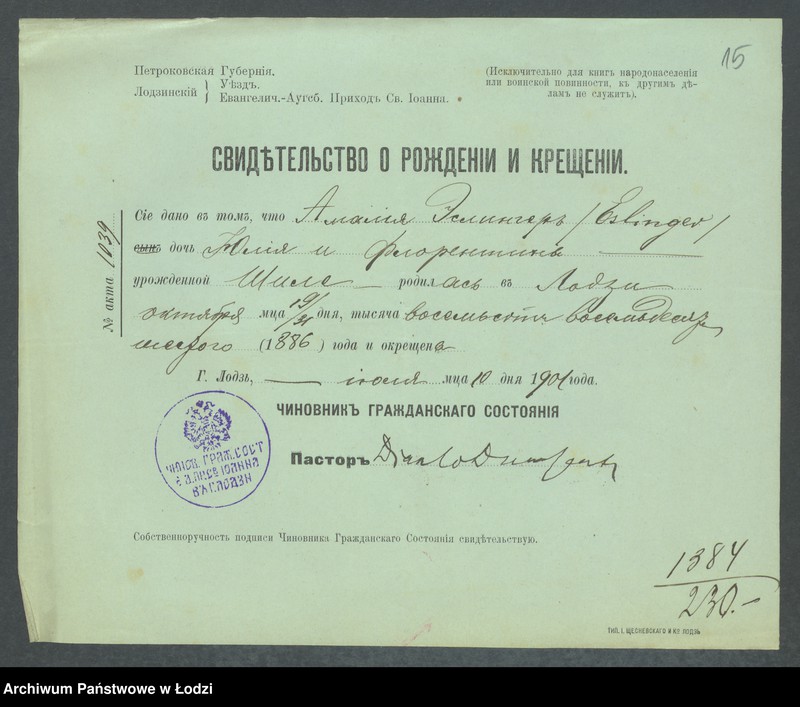 15
Петроковская Губернія.
Лодзинскій } Уѣздъ.
Евангелич.-Аугсб. Приходъ Св. Іоанна.
(Исключительно для книгъ народонаселенія
или воинской повинности, къ другимъ дѣ-
ламъ не служитъ).
СВИДѢТЕЛЬСТВО О РОЖДЕНІИ И КРЕЩЕНІИ.
№ акта 1039
Сіе дано въ томъ, что Амалія Эслингеръ /Eslinger/
сынъ дочь Юлія и Флорентины
урожденной Шилс родилась въ Лодзи
октября мца 19/31 дня, тысяча восемьсотъ восемьдесят
шестого (1886) года и окрещена
Г. Лодзь, іюля мца 10 дня 1901 года.
ЧИНОВНИКЪ ГРАЖДАНСКАГО СОСТОЯНІЯ
Пасторъ
ЧИНОВ. ГРАЖ. СОСТ.
ІОАННА
ВЪ Г. ЛОДЗИ
Собственноручность подписи Чиновника Гражданскаго Состоянія свидѣтельствую.
1384
230.-
ТИП. І. ЩЕСНЕВСКАГО И Кº ЛОДЗЬ
Archiwum Państwowe w Łodzi